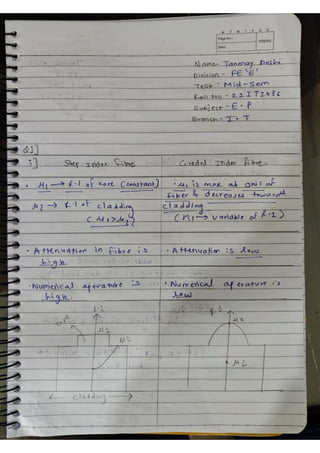 Page No.:
Date:
YOUVA
Name - Tanmay Doshi
Division - FE 'E'
Test - Mid-Sem
Roll No. - 21IT1031
Subject - E.P
Branch - I.T
Q1]
i] Step Index fibre Graded Index fibre
• μ1 → R.I of core (constant) • μ1 is max at axis of
fiber & decreases towards
μ2 → R.I of cladding cladding
(μ1>μ2) (n1 → variable of R.I)
• Attenuation in fibre is • Attenuation is low
high
• Numerical aperature is • Numerical aperature is
high. low
R.I
μ1
μ2
μ2
← cladding →